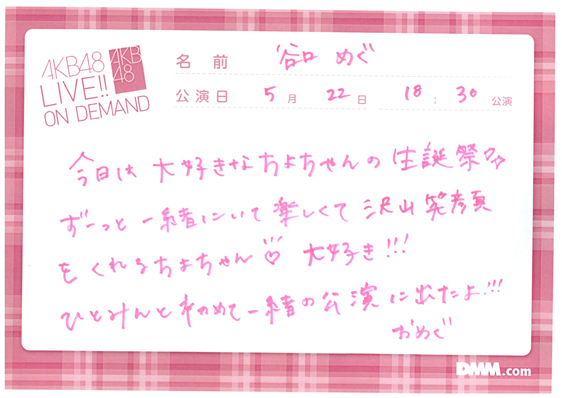 AKB48
LIVE!!
ON DEMAND
AKB
48
名前 谷口 めぐ
公演日 5月 22日 18:30公演
今日は 大好きなちよちゃんの 生誕祭
ずーっと 一緒にいて 楽しくて 沢山 笑顔
をくれるちよちゃん♡ 大好き!!!
ひとみんと初めて一緒の公演に出たよ!!!
おめぐ
DMM.com